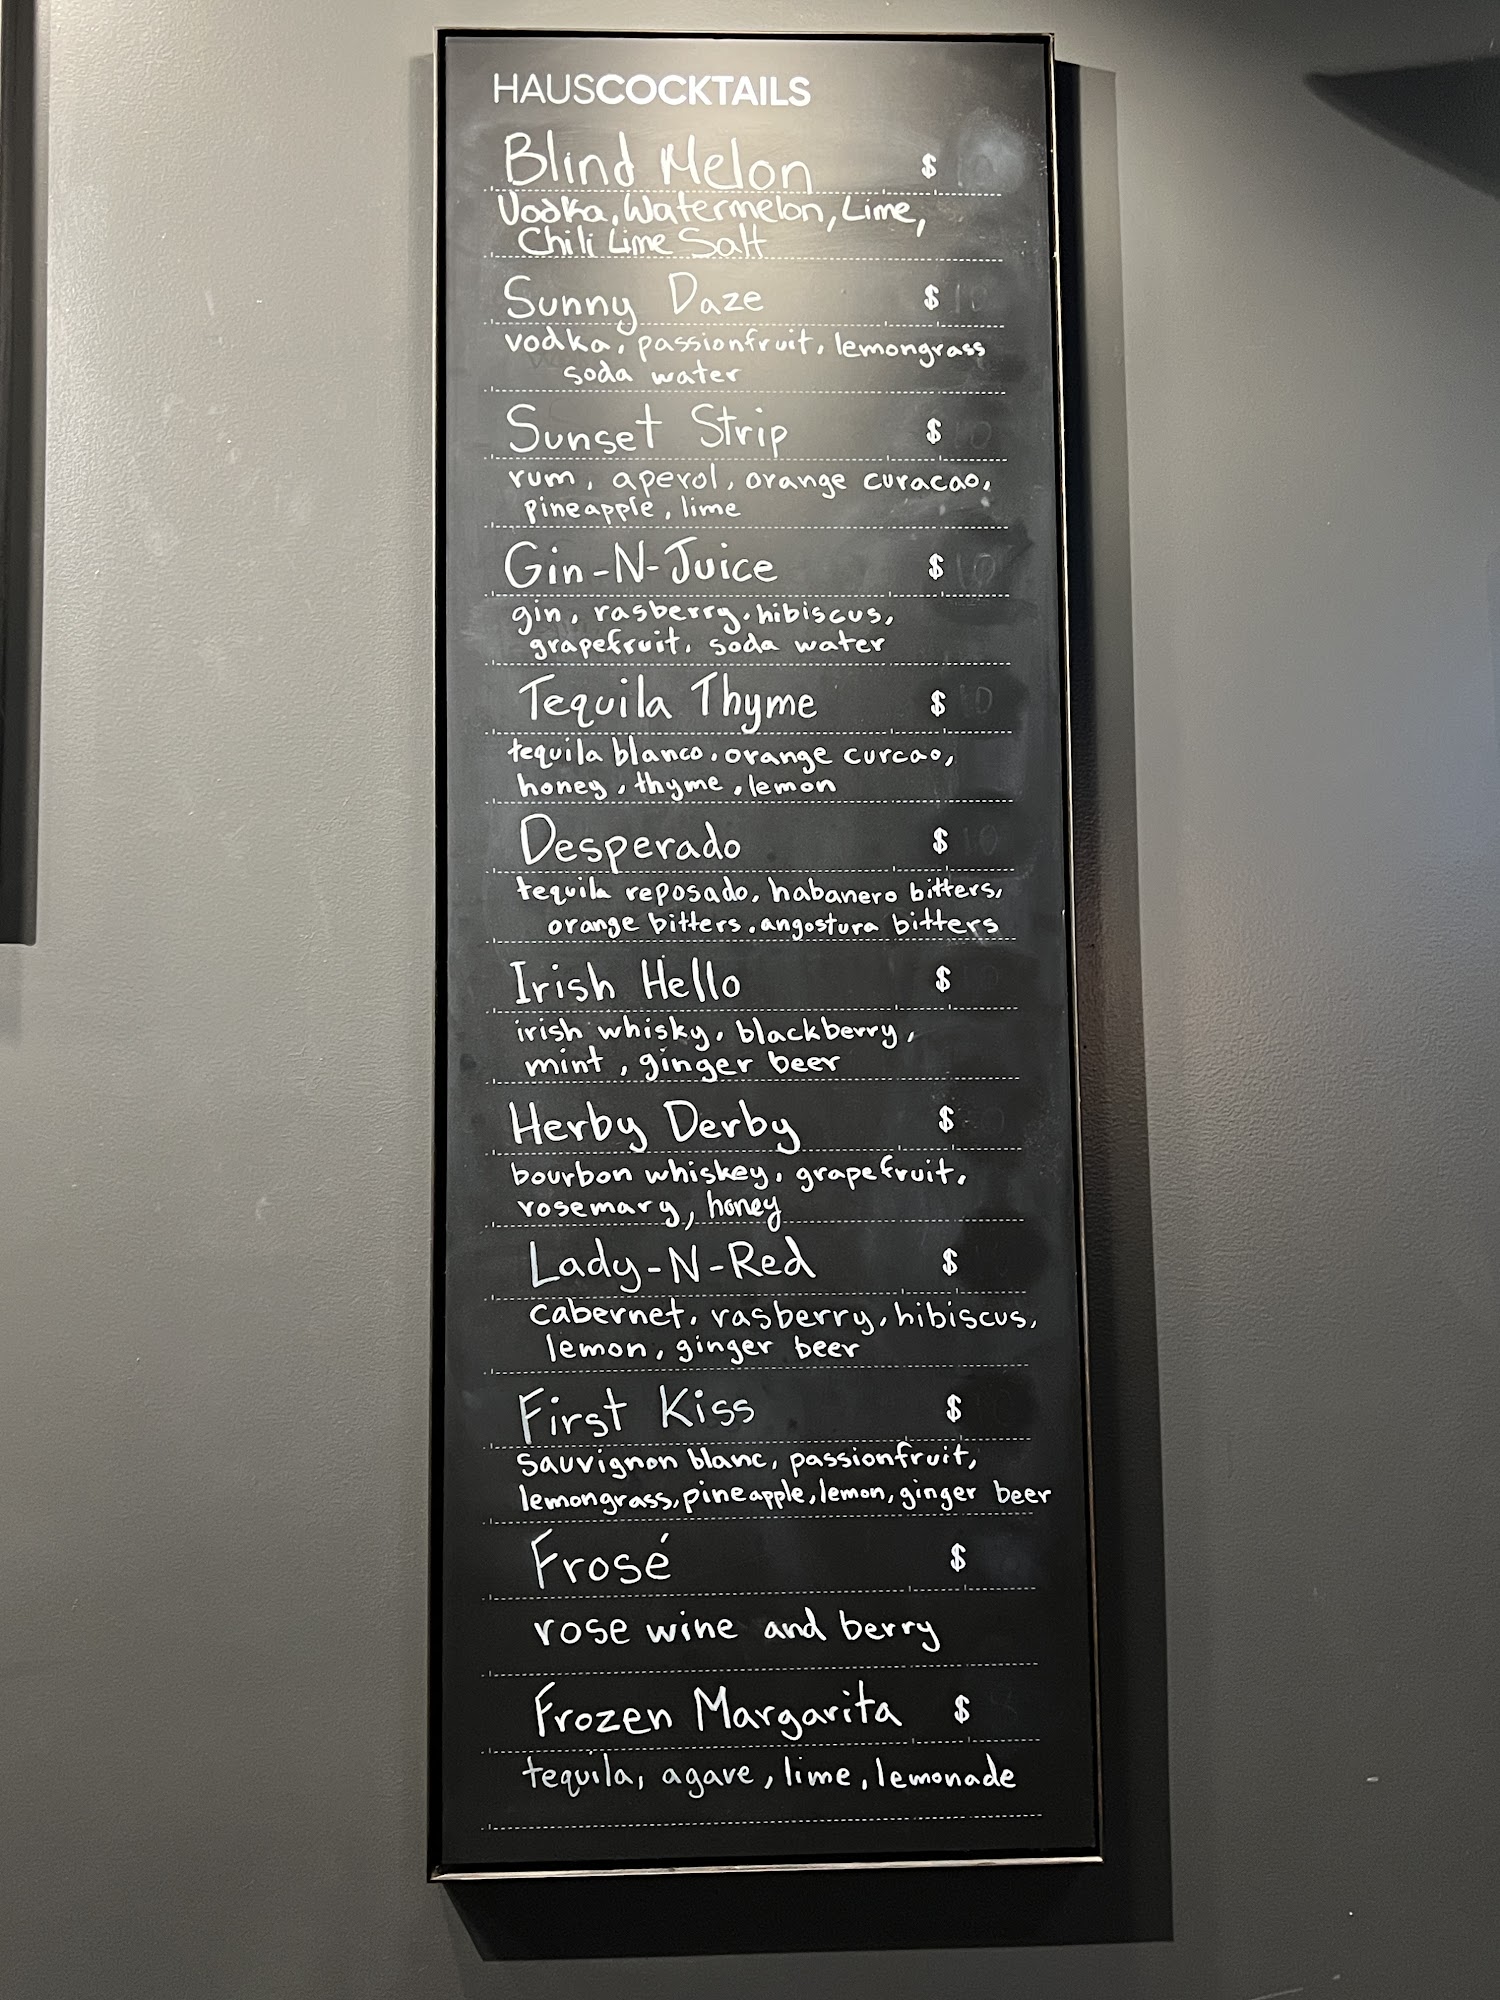 HAUSCOCKTAILS
Blind Melon $
Vodka, Watermelon, Lime,
Chili Lime Salt
Sunny Daze $ 10
vodka, passionfruit, lemongrass
soda water
Sunset Strip $ 10
rum, aperol, orange curacao,
pineapple, lime
Gin-N-Juice $ 10
gin, rasberry, hibiscus,
grapefruit, soda water
Tequila Thyme $ 10
tequila blanco, orange curcao,
honey, thyme, lemon
Desperado $ 10
tequila reposado, habanero bitters,
orange bitters, angostura bitters
Irish Hello $
irish whisky, blackberry,
mint, ginger beer
Herby Derby $
bourbon whiskey, grapefruit,
rosemary, honey
Lady-N-Red $
cabernet, rasberry, hibiscus,
lemon, ginger beer
First Kiss $
sauvignon blanc, passionfruit,
lemongrass, pineapple, lemon, ginger beer
Frosé $
rose wine and berry
Frozen Margarita $
tequila, agave, lime, lemonade